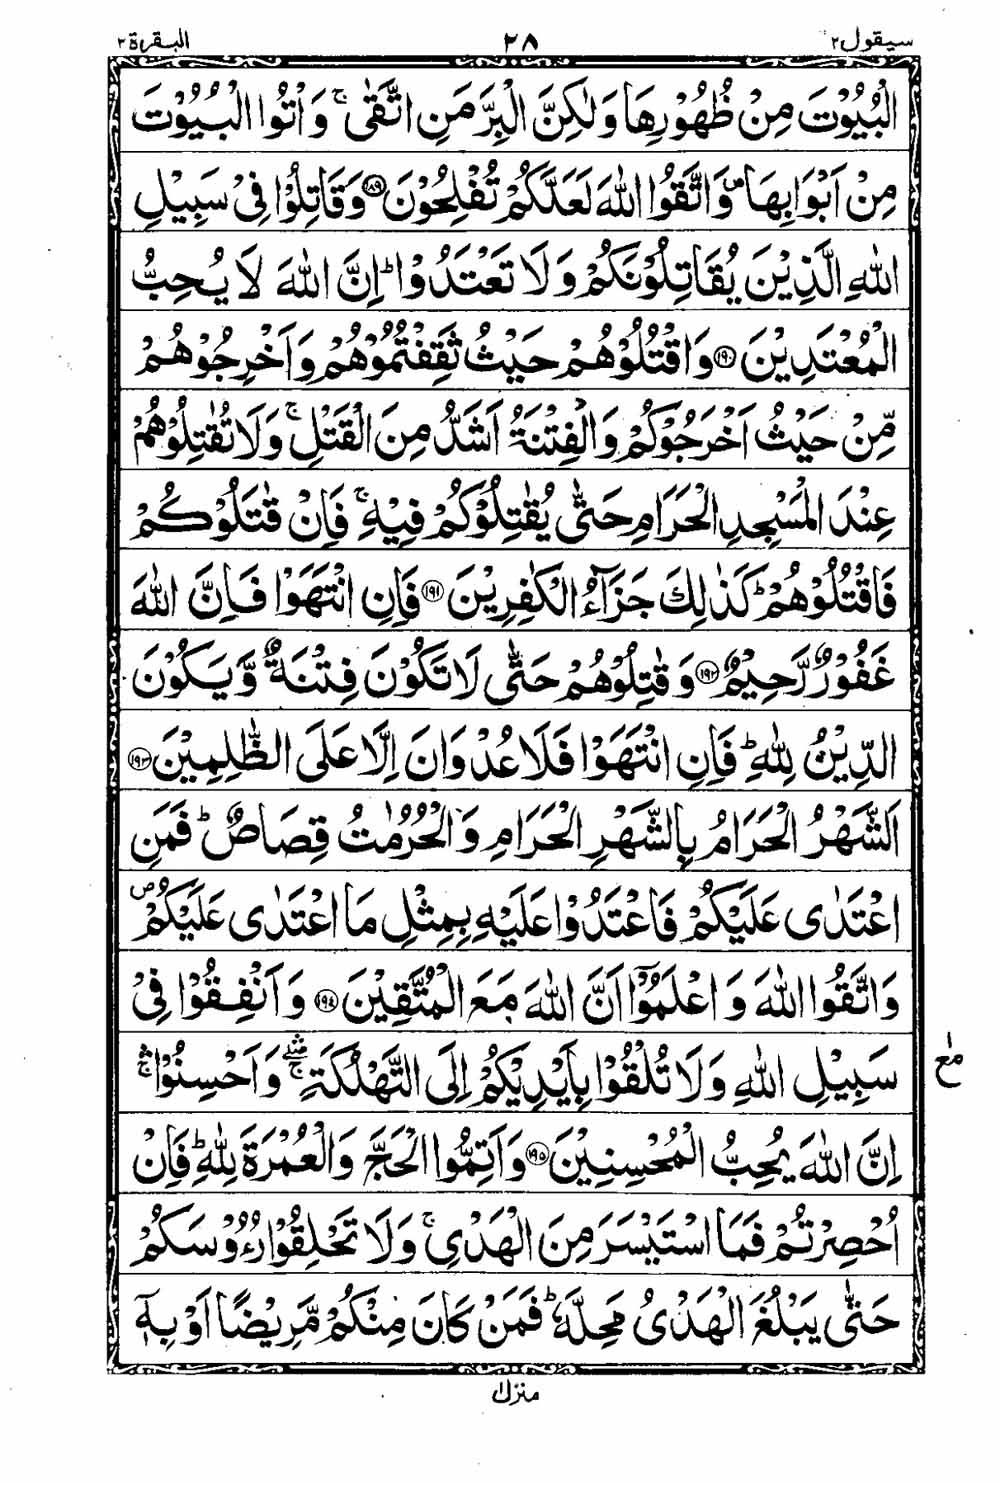 سيقول ٢
٢٨
البقرة ٢
الْبُيُوْتَ مِنْ ظُهُوْرِهَا وَلٰكِنَّ الْبِرَّ مَنِ اتَّقٰى ۚ وَاْتُوا الْبُيُوْتَ
مِنْ اَبْوَابِهَا ۪ وَاتَّقُوا اللّٰهَ لَعَلَّكُمْ تُفْلِحُوْنَ ١٨٩ وَقَاتِلُوْا فِيْ سَبِيْلِ
اللّٰهِ الَّذِيْنَ يُقَاتِلُوْنَكُمْ وَلَا تَعْتَدُوْا ؕ اِنَّ اللّٰهَ لَا يُحِبُّ
الْمُعْتَدِيْنَ ١٩٠ وَاقْتُلُوْهُمْ حَيْثُ ثَقِفْتُمُوْهُمْ وَاَخْرِجُوْهُمْ
مِّنْ حَيْثُ اَخْرَجُوْكُمْ وَالْفِتْنَةُ اَشَدُّ مِنَ الْقَتْلِ ۚ وَلَا تُقٰتِلُوْهُمْ
عِنْدَ الْمَسْجِدِ الْحَرَامِ حَتّٰى يُقٰتِلُوْكُمْ فِيْهِ ۚ فَاِنْ قٰتَلُوْكُمْ
فَاقْتُلُوْهُمْ ؕ كَذٰلِكَ جَزَآءُ الْكٰفِرِيْنَ ١٩١ فَاِنِ انْتَهَوْا فَاِنَّ اللّٰهَ
غَفُوْرٌ رَّحِيْمٌ ١٩٢ وَقٰتِلُوْهُمْ حَتّٰى لَا تَكُوْنَ فِتْنَةٌ وَّيَكُوْنَ
الدِّيْنُ لِلّٰهِ ؕ فَاِنِ انْتَهَوْا فَلَا عُدْوَانَ اِلَّا عَلَى الظّٰلِمِيْنَ ١٩٣
اَلشَّهْرُ الْحَرَامُ بِالشَّهْرِ الْحَرَامِ وَالْحُرُمٰتُ قِصَاصٌ ؕ فَمَنِ
اعْتَدٰى عَلَيْكُمْ فَاعْتَدُوْا عَلَيْهِ بِمِثْلِ مَا اعْتَدٰى عَلَيْكُمْ ۪
وَاتَّقُوا اللّٰهَ وَاعْلَمُوْۤا اَنَّ اللّٰهَ مَعَ الْمُتَّقِيْنَ ١٩٤ وَاَنْفِقُوْا فِيْ
سَبِيْلِ اللّٰهِ وَلَا تُلْقُوْا بِاَيْدِيْكُمْ اِلَى التَّهْلُكَةِ ۛۚ وَاَحْسِنُوْا ۛۚ
مع
اِنَّ اللّٰهَ يُحِبُّ الْمُحْسِنِيْنَ ١٩٥ وَاَتِمُّوا الْحَجَّ وَالْعُمْرَةَ لِلّٰهِ ؕ فَاِنْ
اُحْصِرْتُمْ فَمَا اسْتَيْسَرَ مِنَ الْهَدْيِ ۚ وَلَا تَحْلِقُوْا رُءُوْسَكُمْ
حَتّٰى يَبْلُغَ الْهَدْيُ مَحِلَّهٗ ؕ فَمَنْ كَانَ مِنْكُمْ مَّرِيْضًا اَوْ بِهٖۤ
منزل ١